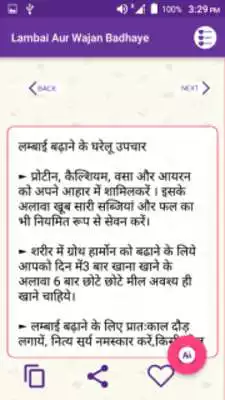 100% 3:29 PM
Lambai Aur Wajan Badhaye
BACK NEXT
लम्बाई बढ़ाने के घरेलू उपचार
► प्रोटीन, कैल्शियम, वसा और आयरन
को अपने आहार में शामिलकरें । इसके
अलावा खूब सारी सब्जियां और फल का
भी नियमित रूप से सेवन करें।
► शरीर में ग्रोथ हार्मोन को बढाने के लिये
आपको दिन में3 बार खाना खाने के
अलावा 6 बार छोटे छोटे मील अवश्य ही
खाने चाहिये।
► लम्बाई बढाने के लिए प्रातःकाल दौड़
लगायें, नित्य सूर्य नमस्कार करें,